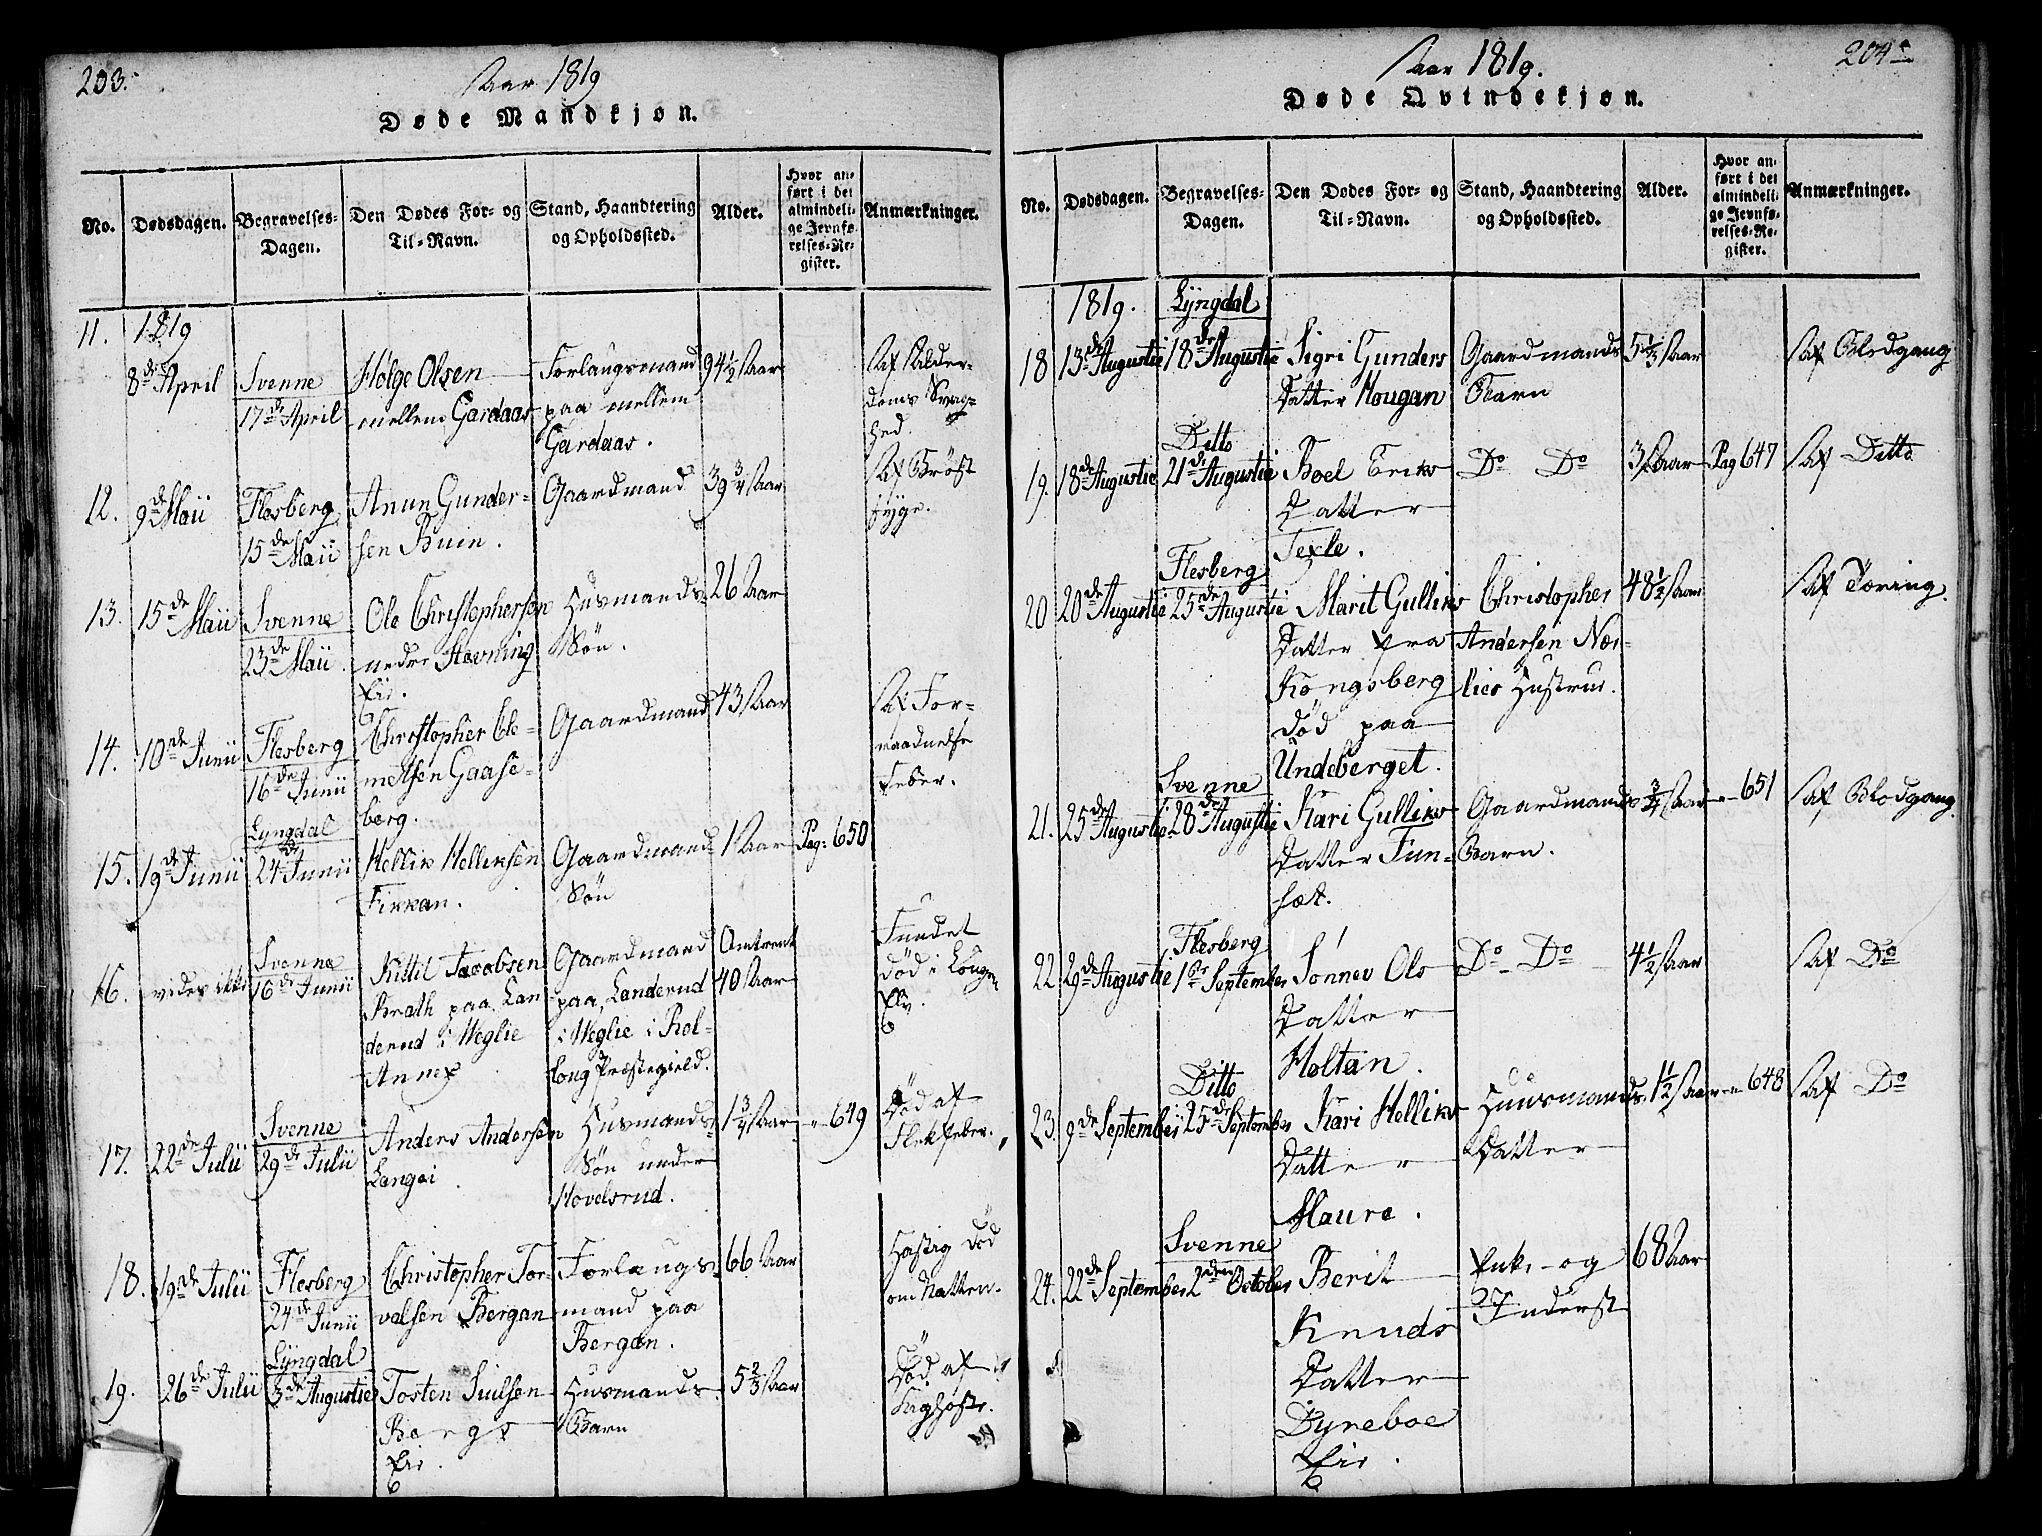 203.
Aar 1819
Døde Mandkjøn.
No.
Dødsdagen.
Begravelses-
Dagen.
Den Dødes For- og
Til-Navn.
Stand, Haandtering
og Opholdssted.
Alder.
Hvor an-
ført i det
almindeli-
ge Jevnfø-
relses-Re-
gister.
Anmærkninger.
11.
1819
8de April
Svenne
17de April
Holge Olsen
mellem Gardaas
Forlaugsmand
paa mellem
Gardaas.
94½ Aar
Af Alder-
doms Svag-
hed.
12.
9de Maii
Flesberg
15de Maii
Anun Gunder-
sen Buin.
Gaardmand
39¾ Aar
Af Brøst
syge.
13.
15de Maii
Svenne
23de Maii
Ole Christophersen
nedre Stevning
Eie.
Husmands
Søn.
26 Aar
14.
10de Junii
Flesberg
16de Junii
Christopher Cle-
metsen Gaase-
berg.
Gaardmand
43 Aar
Af For-
raadnelse
Feber.
15.
19de Junii
Lyngdal
24de Junii
Hellik Helliksen
Fikkan.
Gaardmand
Søn
1 Aar
Pag: 650
16.
vides ikke
Svenne
16de Junii
Kittil Jacobsen
Brath paa Lan-
derud i Weglie
Annex
Gaardmand
paa Landerud
i Weglie i Rol-
loug Præstegield.
Omtrent
40 Aar
Fundet
død i Lougen
Elv.
17.
22de Julii
Svenne
29de Julii
Anders Andersen
Langei.
Husmands
Søn under
Hovelsrud.
1¾ Aar
" 649
Død af
Flekfeber.
18.
19de Julii
Flesberg
24de Junii
Christopher Tor-
valsen Bergan
Forlaugs-
mand paa
Bergan.
66 Aar
Hastig død
om Natten.
19.
26de Julii
Lyngdal
3de Augustie
Tosten Juulsen
Bergs
Eie.
Husmands
Barn
5⅔ Aar
Død af
Kighoste.
204.
Aar 1819.
Døde Qvindekjøn.
No.
Dødsdagen.
Begravelses-
Dagen.
Den Dødes For- og
Til-Navn.
Stand, Haandtering
og Opholdssted.
Alder.
Hvor an-
ført i det
almindeli-
ge Jevnfø-
relses-Re-
gister.
Anmærkninger.
1819.
Lyngdal
18
13de Augustie
18de Augustie
Sigri Gunders
Datter Hougan
Gaardmands
Barn
5⅓ Aar
Af Blodgang
19.
18de Augustie
Ditto
21de Augustie
Boel Eriks
Datter
Texle.
Do Do
3 Aar
Pag 647
Af Ditto
20
20de Augustie
Flesberg
25de Augustie
Marit Gulliks
Datter fra
Kongsberg
død paa
Undeberget.
Christopher
Andersen Nør-
lies Hustrue.
48½ Aar
Af Tæring.
21.
25de Augustie
Svenne
28de Augustie
Kari Gulliks
Datter Tun-
sæt.
Gaardmands
Barn.
¾ Aar
" 651
Af Blodgang.
22
29de Augustie
Flesberg
1ste September
Sønnev Ols
Datter
Holtan.
Do Do
4½ Aar
Af Do
23.
9de September
Ditto
25de September
Kari Helliks
Datter
Maure.
Huusmands
Datter
1½ Aar
" 648
Af Do
24.
22de September
Svenne
2den October
Berit
Knuds
Datter
Dyneboe
Eie.
Enke og
Inderst
68 Aar